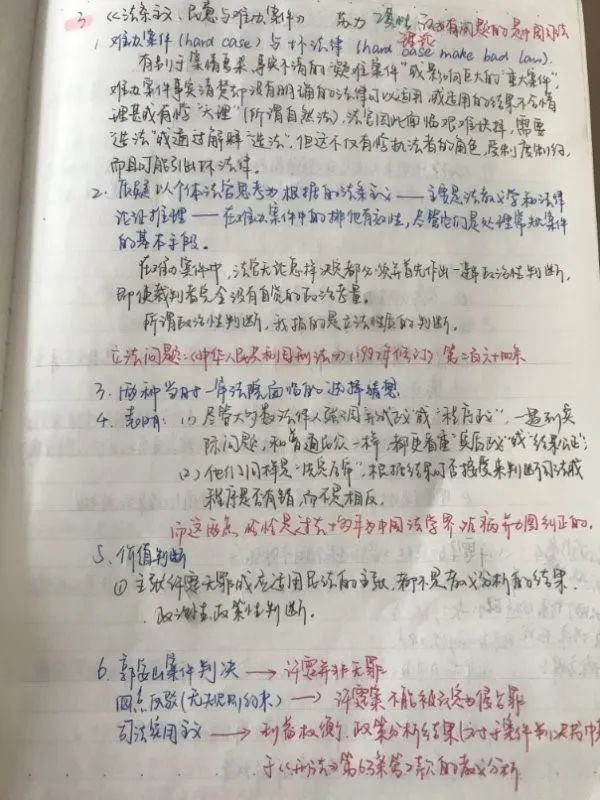 3 《法条主义、民意与难办案件》 苏力
1. 难办案件(hard case)与坏法律(hard case make bad law).
有别于案情复杂、事实不清的"疑难案件"或影响巨大的"重大案件",
难办案件事实清楚却没有明确的法律可以适用,或适用的结果不合情
理甚或有悖"天理"(所谓自然法).法官因此面临艰难抉择,需要
"造法"或通过解释"造法".但这不仅有悖执法者的角色,受制度制约,
而且可能引出坏法律.
2. 质疑以个体法官思考为根据的法条主义——主要是法教义学和法律
论证推理——在难办案件中的排他有效性,尽管它们是处理常规案件
的基本手段。
在难办案件中,法官无论怎样决定都必须并首先作出一些政治性判断,
即使裁判者完全没有自觉的政治考量。
所谓政治性判断,我指的是立法性质的判断.
立法问题:《中华人民共和国刑法》(1997年修订)第二百六十四条
3. 两种当时一审法院面临的选择猜想
4. 表明:(1)尽管大多数法律人强调形式正义或"程序正义",一遇到实
际问题,和普通民众一样,都更看重"实质正义"或"结果公正";
(2)他们同样是"法兵后命",根据结果可否接受来判断司法或
程序是否有错,而不是相反.
而这两点,恰恰是过去十多年为中国法学界诟病并力图纠正的.
5. 价值判断
① 主张许霆无罪或应适用民法的主张,都不是教义分析的结果.
政治性、政策性判断.
6. 郭安山案件判决 → 许霆并非无罪
(无规则约束) → 许霆案不能被认定为侵占罪
司法实用主义 → 利益权衡、政策分析结果
于《刑法》第63条第2款的教义分析